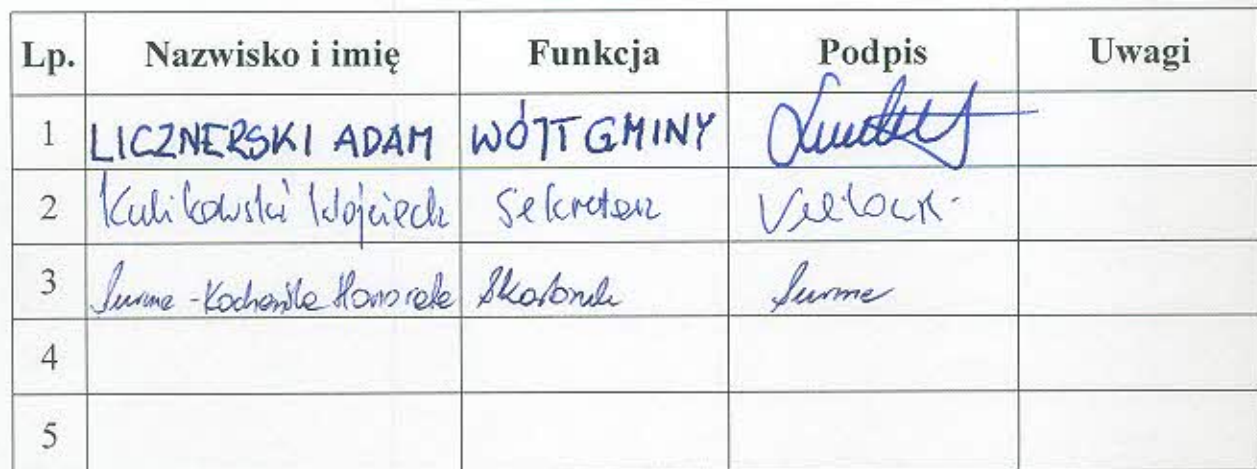 Lp. Nazwisko i imię Funkcja Podpis Uwagi
1 LICZNERSKI ADAM WÓJT GMINY
2 Kulikowski Wojciech Sekretarz
3 Surma-Kochańska Honorata Skarbnik Surma
4
5